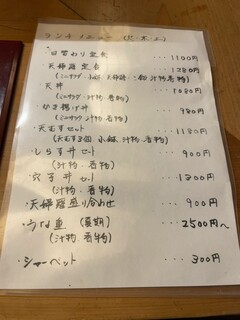 ランチメニュー
・日替わり定食 ‥‥1100円
・天婦羅定食 ‥‥1280円
・天丼 ‥‥1080円
(ミニサラダ・汁物・香物)
・かき揚げ丼 ‥‥980円
(ミニサラダ・汁物・香物)
・天むすセット ‥‥1180円
(天むす3個・小鉢・汁物・香物)
・しらす丼セット ‥‥900円
(汁物・香物)
・穴子丼セット ‥‥1300円
(汁物・香物)
・天婦羅盛り合わせ ‥‥900円
・うな重(夏期) ‥‥2500円〜
(汁物・香物)
・シャーベット ‥‥300円